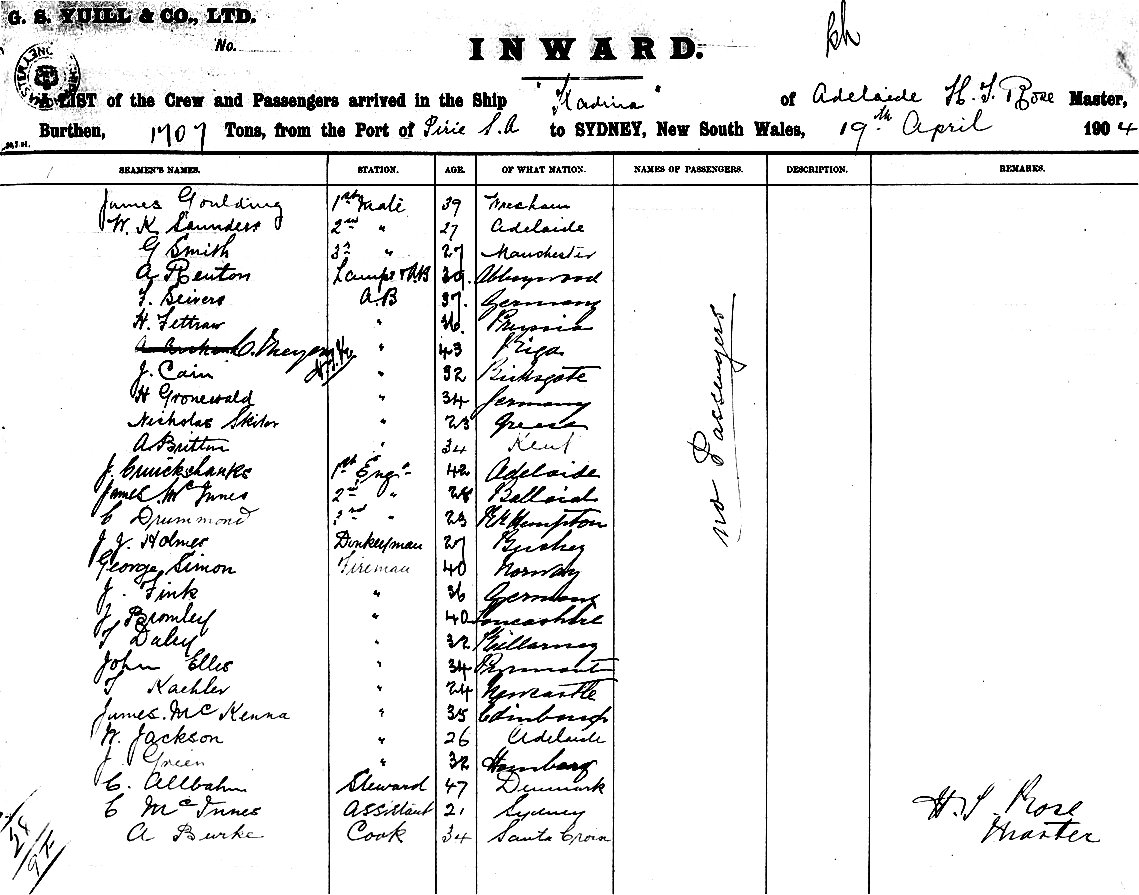 G. S. YUILL & CO., LTD.
No.
INWARD.
A LIST of the Crew and Passengers arrived in the Ship of Adelaide H. S. Rose Master,
Burthen, 1707 Tons, from the Port of Pirie S.A to SYDNEY, New South Wales, 19th April 1904
SEAMEN'S NAMES. STATION. AGE. OF WHAT NATION. NAMES OF PASSENGERS. DESCRIPTION. REMARKS.
James Goulding 1st Mate 39 Wrexham
W. K. Saunders 2nd " 27 Adelaide
G Smith 3d " 27 Manchester
A Renton Lamps & AB 39 Abbeywood
T. Seivers A.B 37 Germany
H. Tettraw " 36 Prussia
C. Meyer " 43 Riga
J. Cain " 32
H Gronewald " 34 Germany
Nicholas " 23 Greece
A Britton " 34 Kent
J. Cruickshanks 1st Engr 42 Adelaide
James McInnes 2nd " 28
C Drummond 3rd " 23
J. J. Holmes Donkeyman 27
George Simon Fireman 40 Norway
J. Fink " 36 Germany
J Bromley " 40 Lancashire
T Daley " 32 Killarney
John Ellis " 34
T Kaehler " 24 Newcastle
James McKenna " 35 Edinburgh
W. Jackson " 26 Adelaide
J. Green " 32 Hamburg
C. Allbahn Steward 47 Denmark
C McInnes Assistant 21 Sydney
A Burke Cook 34 Santa
no Passengers
H. S. Rose
Master